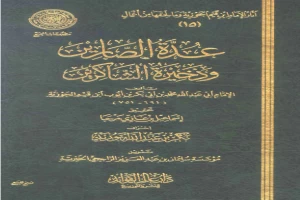 آثار الإمام ابن قيم الجوزية وما لحقها من أعمال
(١٥)
عدة الصابرين
وذخيرة الشاكرين
تأليف
الإمام أبي عبد الله محمد بن أبي بكر بن أيوب ابن قيم الجوزية
(٦٩١ - ٧٥١)
تحقيق
إسماعيل بن غازي مرحبا
إشراف
بكر بن عبد الله أبو زيد
تمويل
مؤسسة سليمان بن عبد العزيز الراجحي الخيرية
دار عالم الفوائد
للنشر والتوزيع